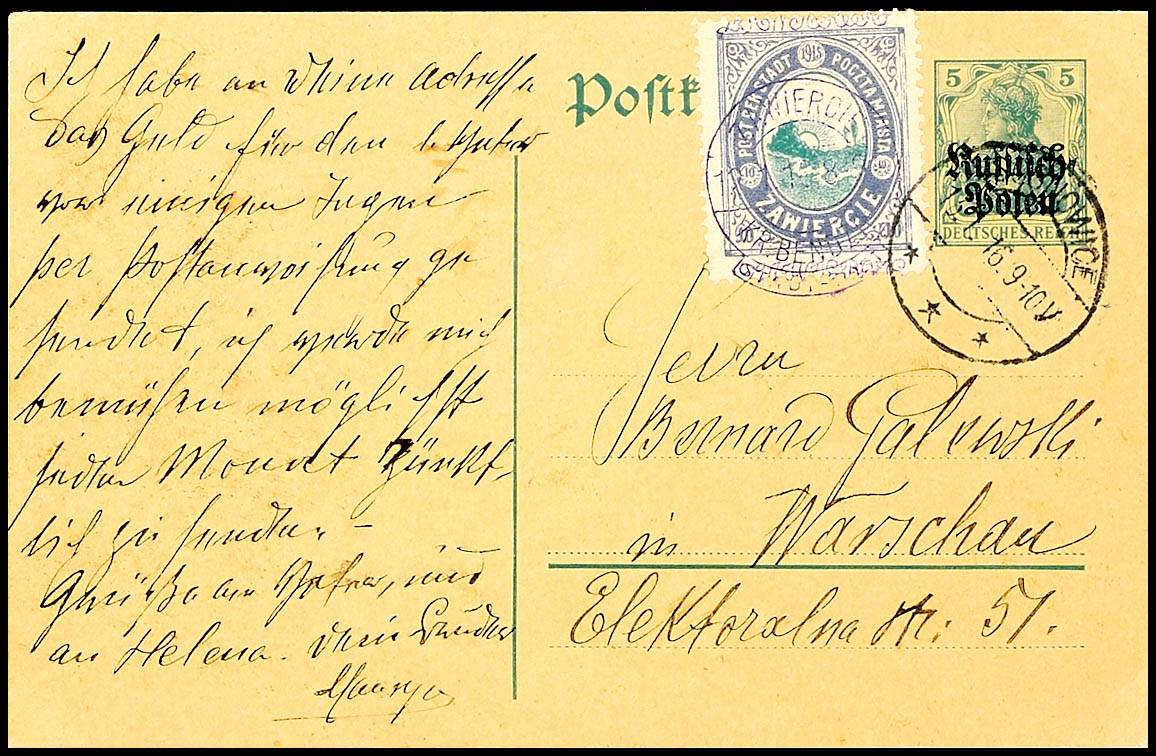 Ich habe an Deine Adresse
das Geld für den
vor einigen Tagen
per Postanweisung ge
sendet, ich werde mich
bemühen möglichst
jeden Monat pünkt-
lich zu senden. –
Grüße an Peter, und
an Helena. Dein Bruder
Postk
POSTBEI STADT 1915 POCZTA MIASTA
10
ZAWIERCIE
ZAWIERCIE
KR. BEND
5 5
Russisch-
Polen
DEUTSCHES REICH
16.9-10V
Herrn
Bernard Galewski
in Warschau
Elektoralna Str: 51.